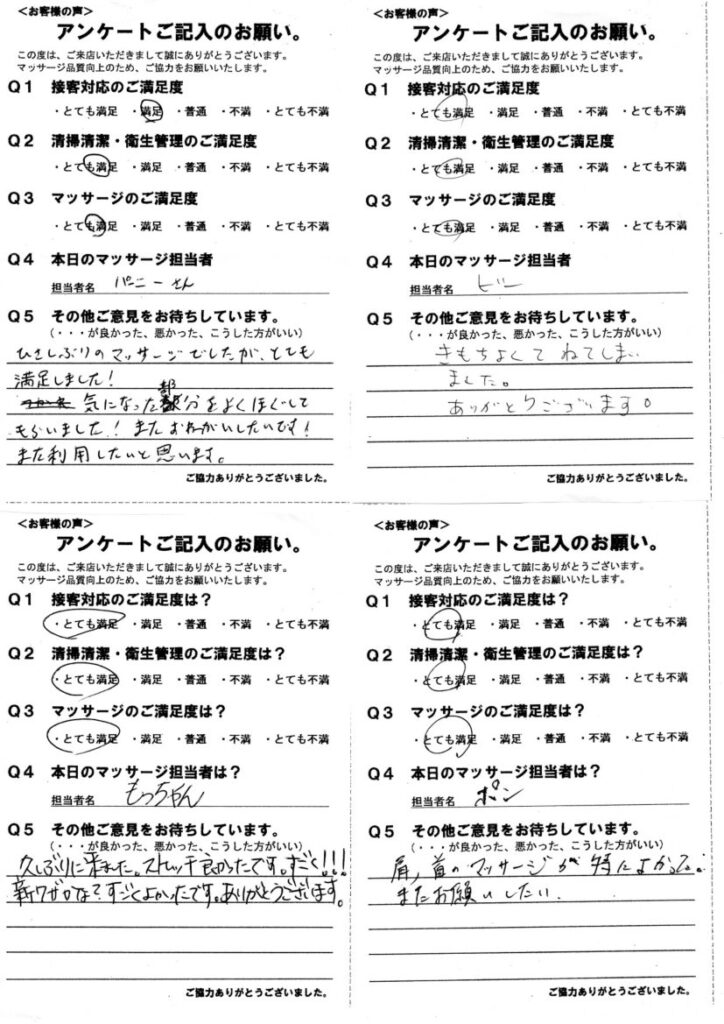 <お客様の声>
アンケートご記入のお願い。
この度は、ご来店いただきまして誠にありがとうございます。
マッサージ品質向上のため、ご協力をお願いいたします。
Q1 接客対応のご満足度
・とても満足 ・満足 ・普通 ・不満 ・とても不満
Q2 清掃清潔・衛生管理のご満足度
・とても満足 ・満足 ・普通 ・不満 ・とても不満
Q3 マッサージのご満足度
・とても満足 ・満足 ・普通 ・不満 ・とても不満
Q4 本日のマッサージ担当者
担当者名 パニーさん
Q5 その他ご意見をお待ちしています。
(・・・が良かった、悪かった、こうした方がいい)
ひさしぶりのマッサージでしたが、とても
満足しました!
気になった部分をよくほぐして
もらいました!またおねがいしたいです!
また利用したいと思います。
ご協力ありがとうございました。
<お客様の声>
アンケートご記入のお願い。
この度は、ご来店いただきまして誠にありがとうございます。
マッサージ品質向上のため、ご協力をお願いいたします。
Q1 接客対応のご満足度
・とても満足 ・満足 ・普通 ・不満 ・とても不満
Q2 清掃清潔・衛生管理のご満足度
・とても満足 ・満足 ・普通 ・不満 ・とても不満
Q3 マッサージのご満足度
・とても満足 ・満足 ・普通 ・不満 ・とても不満
Q4 本日のマッサージ担当者
担当者名 ビー
Q5 その他ご意見をお待ちしています。
(・・・が良かった、悪かった、こうした方がいい)
きもちよくてねてしまい
ました。
ありがとうございます。
ご協力ありがとうございました。
<お客様の声>
アンケートご記入のお願い。
この度は、ご来店いただきまして誠にありがとうございます。
マッサージ品質向上のため、ご協力をお願いいたします。
Q1 接客対応のご満足度は?
・とても満足 ・満足 ・普通 ・不満 ・とても不満
Q2 清掃清潔・衛生管理のご満足度は?
・とても満足 ・満足 ・普通 ・不満 ・とても不満
Q3 マッサージのご満足度は?
・とても満足 ・満足 ・普通 ・不満 ・とても不満
Q4 本日のマッサージ担当者は?
担当者名 もっちゃん
Q5 その他ご意見をお待ちしています。
(・・・が良かった、悪かった、こうした方がいい)
久しぶりに来ました。ストレッチ良かったです。すごく!!!
新ワザかな?すごくよかったです。ありがとうございます。
ご協力ありがとうございました。
<お客様の声>
アンケートご記入のお願い。
この度は、ご来店いただきまして誠にありがとうございます。
マッサージ品質向上のため、ご協力をお願いいたします。
Q1 接客対応のご満足度は?
・とても満足 ・満足 ・普通 ・不満 ・とても不満
Q2 清掃清潔・衛生管理のご満足度は?
・とても満足 ・満足 ・普通 ・不満 ・とても不満
Q3 マッサージのご満足度は?
・とても満足 ・満足 ・普通 ・不満 ・とても不満
Q4 本日のマッサージ担当者は?
担当者名 ポン
Q5 その他ご意見をお待ちしています。
(・・・が良かった、悪かった、こうした方がいい)
肩,首のマッサージが特によかった。
またお願いしたい.
ご協力ありがとうございました。